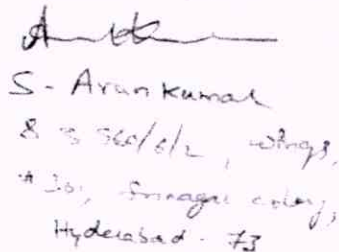 S. Arun Kumar
8 3 560/6/2, wings,
# 301, Srinagar colony,
Hyderabad - 73